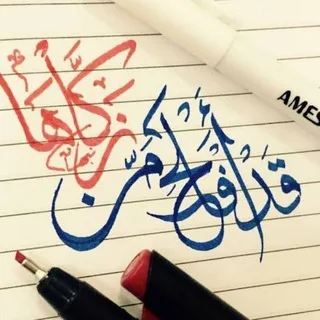 قد أفلح من
زكاها
AMES